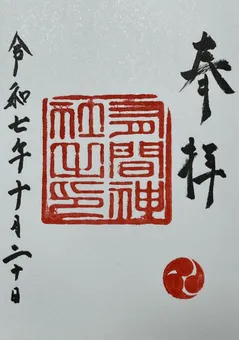 奉拝
有間神
社之印
令和七年十月二十日